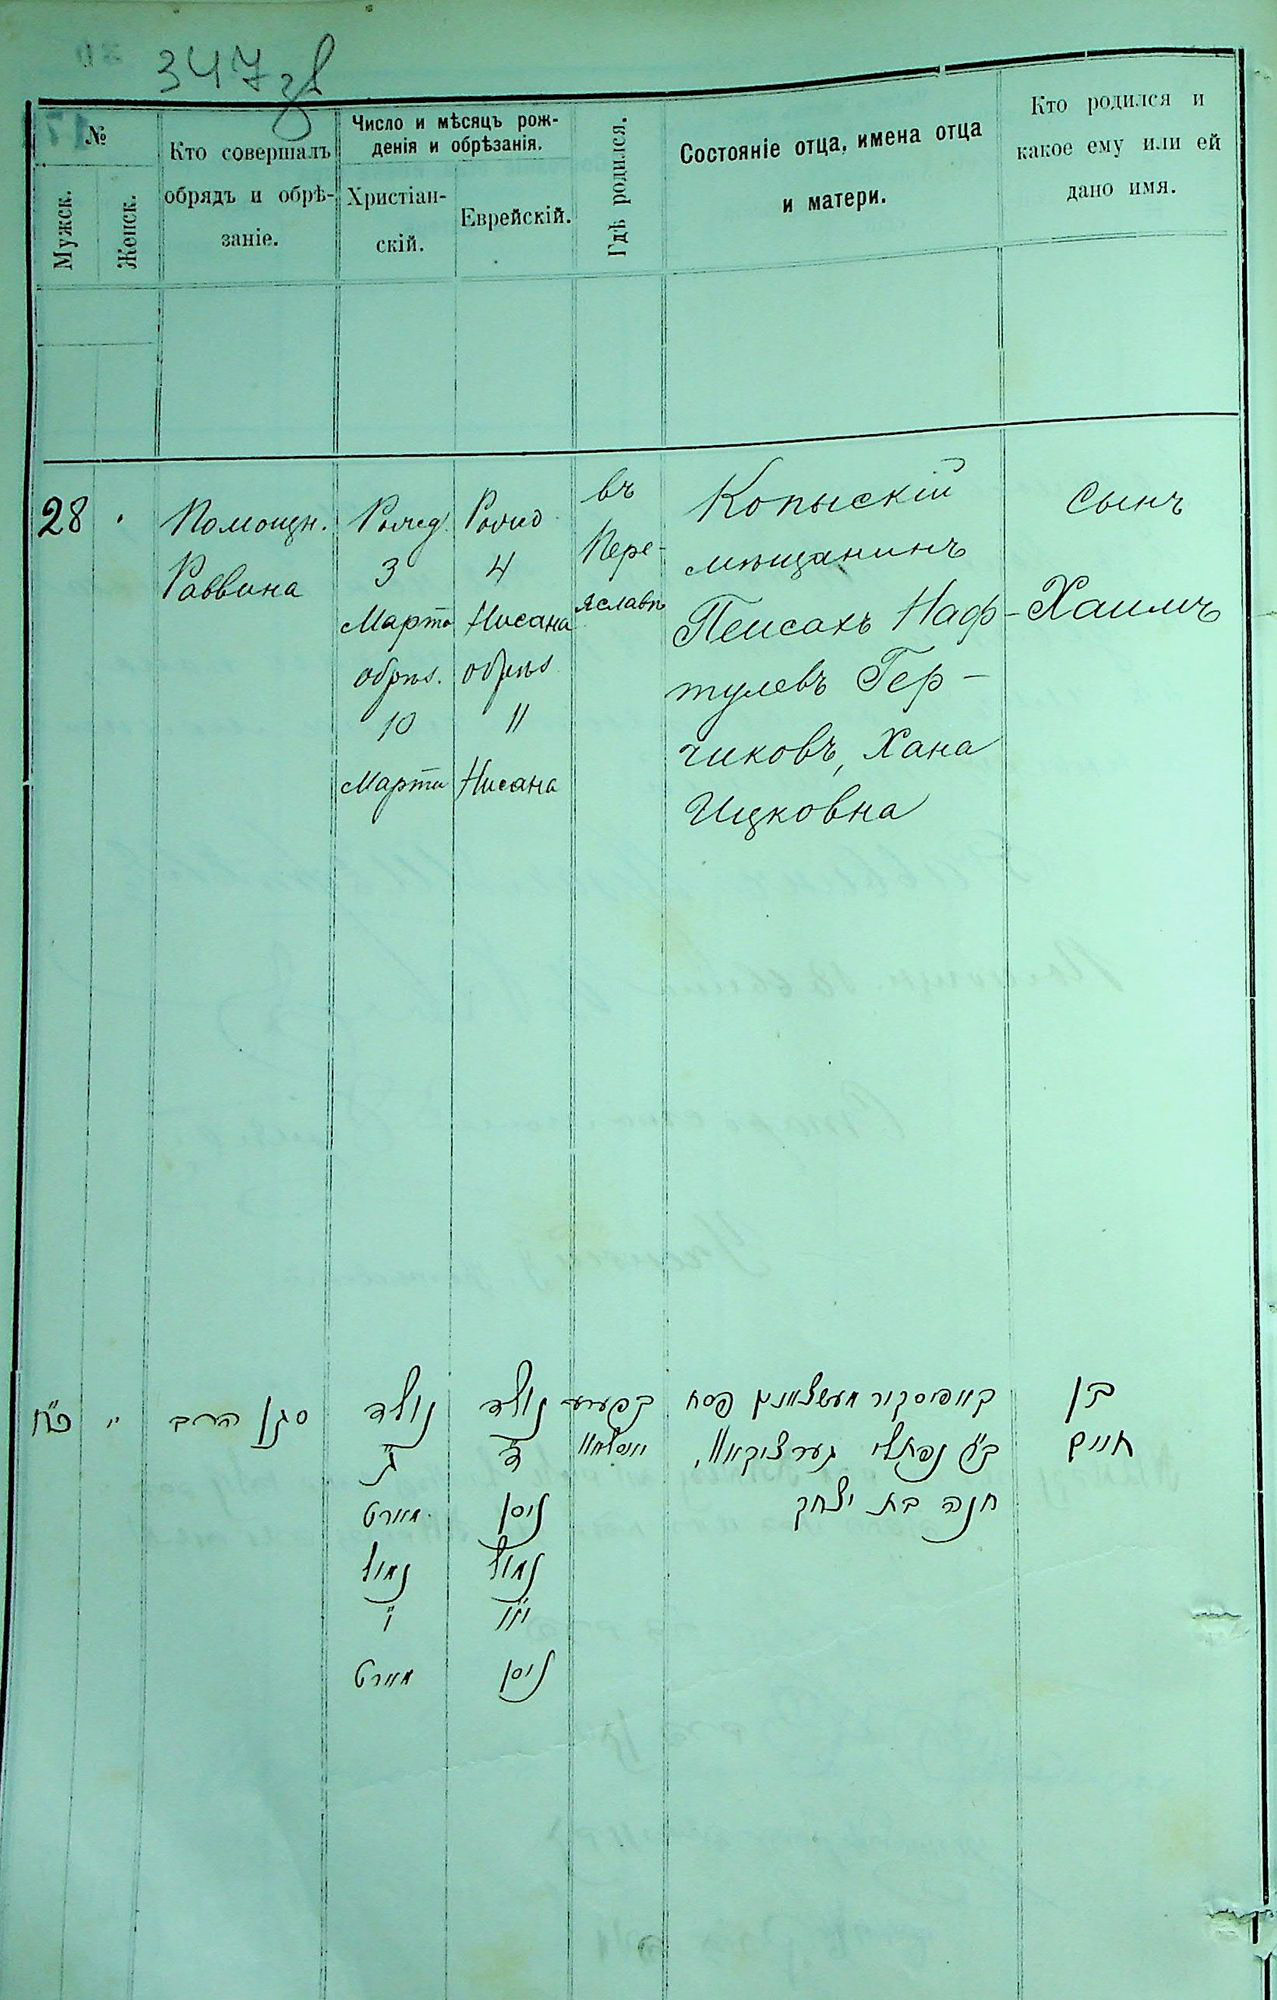 347 зв
№
Мужск.
Женск.
Кто совершалъ
обрядъ и обрѣ-
заніе.
Число и мѣсяцъ рож-
денія и обрѣзанія.
Христіан-
скій.
Еврейскій.
Гдѣ родился.
Состояніе отца, имена отца
и матери.
Кто родился и
какое ему или ей
дано имя.
28
Помощн.
Раввина
Рожд.
3
Марта
обрѣз.
10
Марта
4
Нисана
обрѣз.
11
Нисана
въ
Пере-
яславѣ
Копыскій
мѣщанинъ
Пейсахъ Наф-
тулевъ Гер-
чиковъ, Хана
Ицковна
Сынъ
Хаимъ
כ״ח
״
סגן הרב
נולד
ג׳
מארט
נמול
י׳
מארט
נולד
ד׳
ניסן
נמול
י״א
ניסן
בפערע
יאסלאוו
קאפיסקיר מעשצאנין פסח
ב״ר נפתלי גערציקאוו,
חנה בת יצחק
בן
חיים